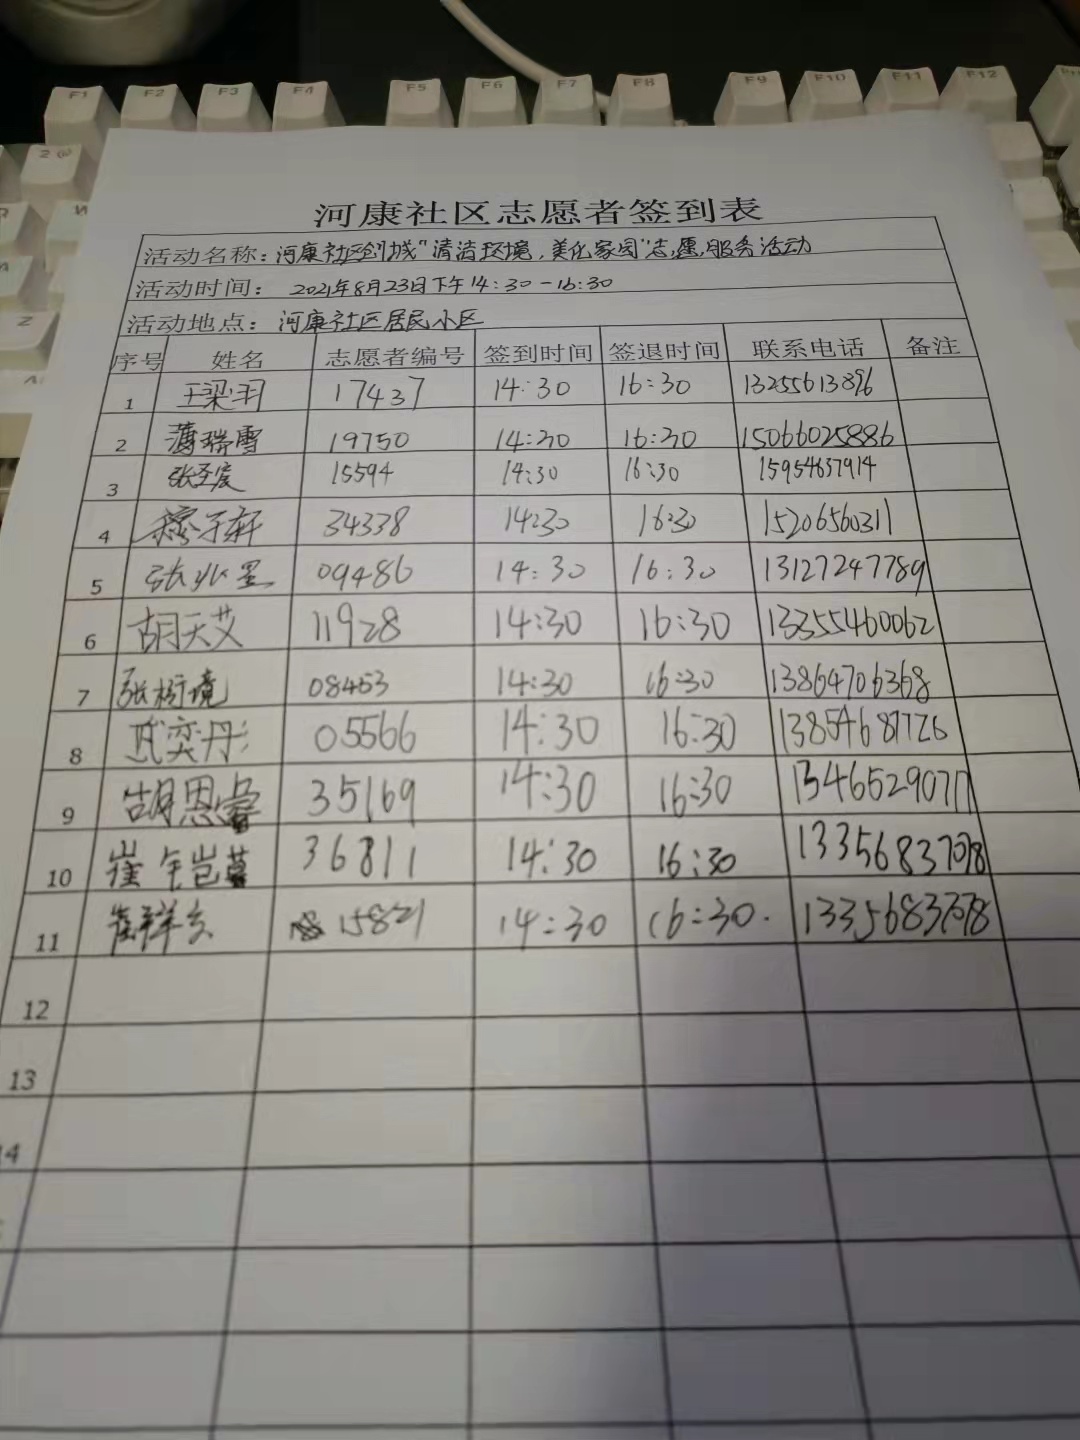 F1 F2 F3 F4 F5 F6 F7 F8 F9 F10 F11 F12
河康社区志愿者签到表
活动名称：河康社区创城"清洁环境，美化家园"志愿服务活动
活动时间： 2021年8月23日下午14:30-16:30
活动地点： 河康社区居民小区
序号 姓名 志愿者编号 签到时间 签退时间 联系电话 备注
1 王梁羽 17437 14:30 16:30 13255613896
2 薄瑞雪 19750 14:30 16:30 15066025886
3 张圣宸 15594 14:30 16:30 15954637914
4 子轩 34338 14:30 16:30 15206560311
5 张兆昱 09486 14:30 16:30 13127247789
6 胡天艾 11928 14:30 16:30 13355460062
7 张树境 08453 14:30 16:30 13864706368
8 武奕彤 05566 14:30 16:30 13854687726
9 胡恩睿 35169 14:30 16:30
10 崔 36811 14:30 16:30
11 崔祥 15821 14:30 16:30.
12
13